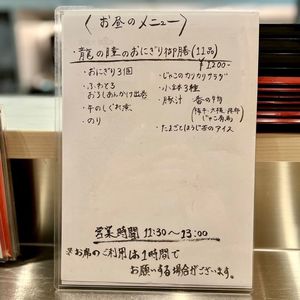 〈お昼のメニュー〉
・龍の瞳のおにぎり御膳(11品)
¥1,200-
・おにぎり3個
・ふわとろ
おろしあんかけ出巻
・牛のしぐれ煮
・のり
・じゃこのカリカリサラダ
・小鉢3種
・豚汁 香の物
・たまごとほうじ茶のアイス
営業時間 11:30〜13:00
※お席のご利用は1時間で
お願いする場合がございます。